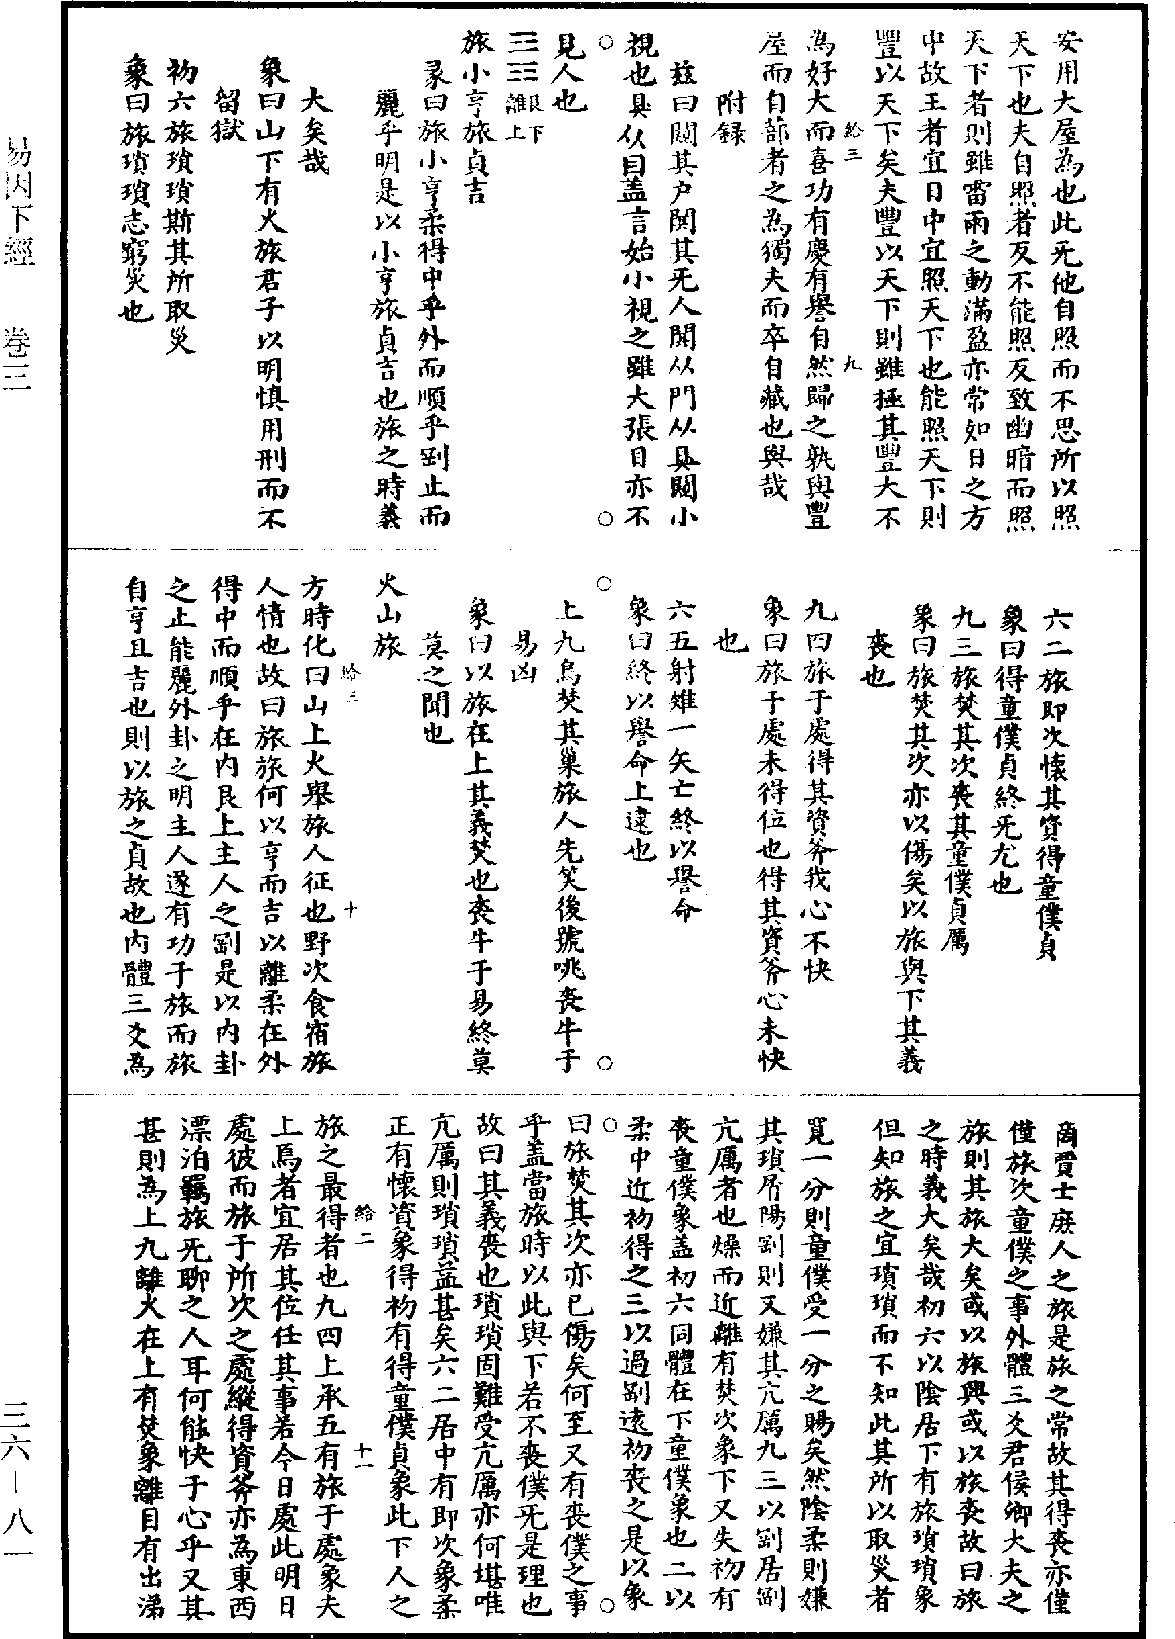 安用大屋為也此旡他自照而不思所以照
天下也夫自照者反不能照反致幽暗而照
天下者則雖雷雨之動滿盈亦常如日之方
中故王者宜日中宜照天下也能照天下則
豐以天下矣夫豐以天下則雖極其豐大不
給三 九
為好大而喜功有慶有譽自然歸之孰與豐
屋而自蔀者之為獨夫而卒自藏也與哉
附録
兹曰闚其户闃其旡人闃从門从狊闚小
視也具从目盖言始小視之雖大張目亦不
見人也
☲☶ 艮下離上
旅小亨旅貞吉
彖曰旅小亨柔得中乎外而順乎剛止而
麗乎明是以小亨旅貞吉也旅之時義
大矣哉
象曰山下有火旅君子以明慎用刑而不
留獄
初六旅瑣瑣斯其所取災
象曰旅瑣瑣志窮災也
六二旅即次懷其資得童僕貞
象曰得童僕貞終旡尤也
九三旅焚其次喪其童僕貞厲
象曰旅焚其次亦以傷矣以旅與下其義
喪也
九四旅于處得其資斧我心不快
象曰旅于處未得位也得其資斧心未快
也
六五射雉一矢亡終以譽命
象曰終以譽命上逮也
上九鳥焚其巢旅人先笑後號咷喪牛于
易凶
象曰以旅在上其義焚也喪牛于易終莫
莫之聞也
火山旅
給三 十
方時化曰山上火舉旅人征也野次食宿旅
人情也故曰旅旅何以亨而吉以離柔在外
得中而順乎在内艮上主人之剛是以内卦
之止能麗外卦之明主人遂有功于旅而旅
自亨且吉也則以旅之貞故也内體三爻為
商賈士庶人之旅是旅之常故其得喪亦僅
僅旅次童僕之事外體三爻君侯卿大夫之
旅則其旅大矣或以旅興或以旅喪故曰旅
之時義大矣哉初六以陰居下有旅瑣瑣象
但知旅之宜瑣瑣而不知此其所以取災者
覓一分則童僕受一分之賜矣然陰柔則嫌
其瑣屑陽剛則又嫌其亢厲九三以剛居剛
亢厲者也燥而近離有焚次象下又失初有
喪童僕象盖初六同體在下童僕象也二以
柔中近初得之三以過剛遠初喪之是以象
曰旅焚其次亦已傷矣何至又有喪僕之事
乎盖當旅時以此與下若不喪僕旡是理也
故曰其義喪也瑣瑣固難受亢厲亦何堪唯
亢厲則瑣瑣益甚矣六二居中有即次象柔
正有懷資象得初有得童僕貞象此下人之
給二 十一
旅之最得者也九四上承五有旅于處象夫
上焉者宜居其位任其事若今日處此明日
處彼而旅于所次之處縱得資斧亦為東西
漂泊羈旅旡聊之人耳何能快于心乎又其
甚則為上九離火在上有焚象離目有出涕
易因下經 卷三
三六－八一